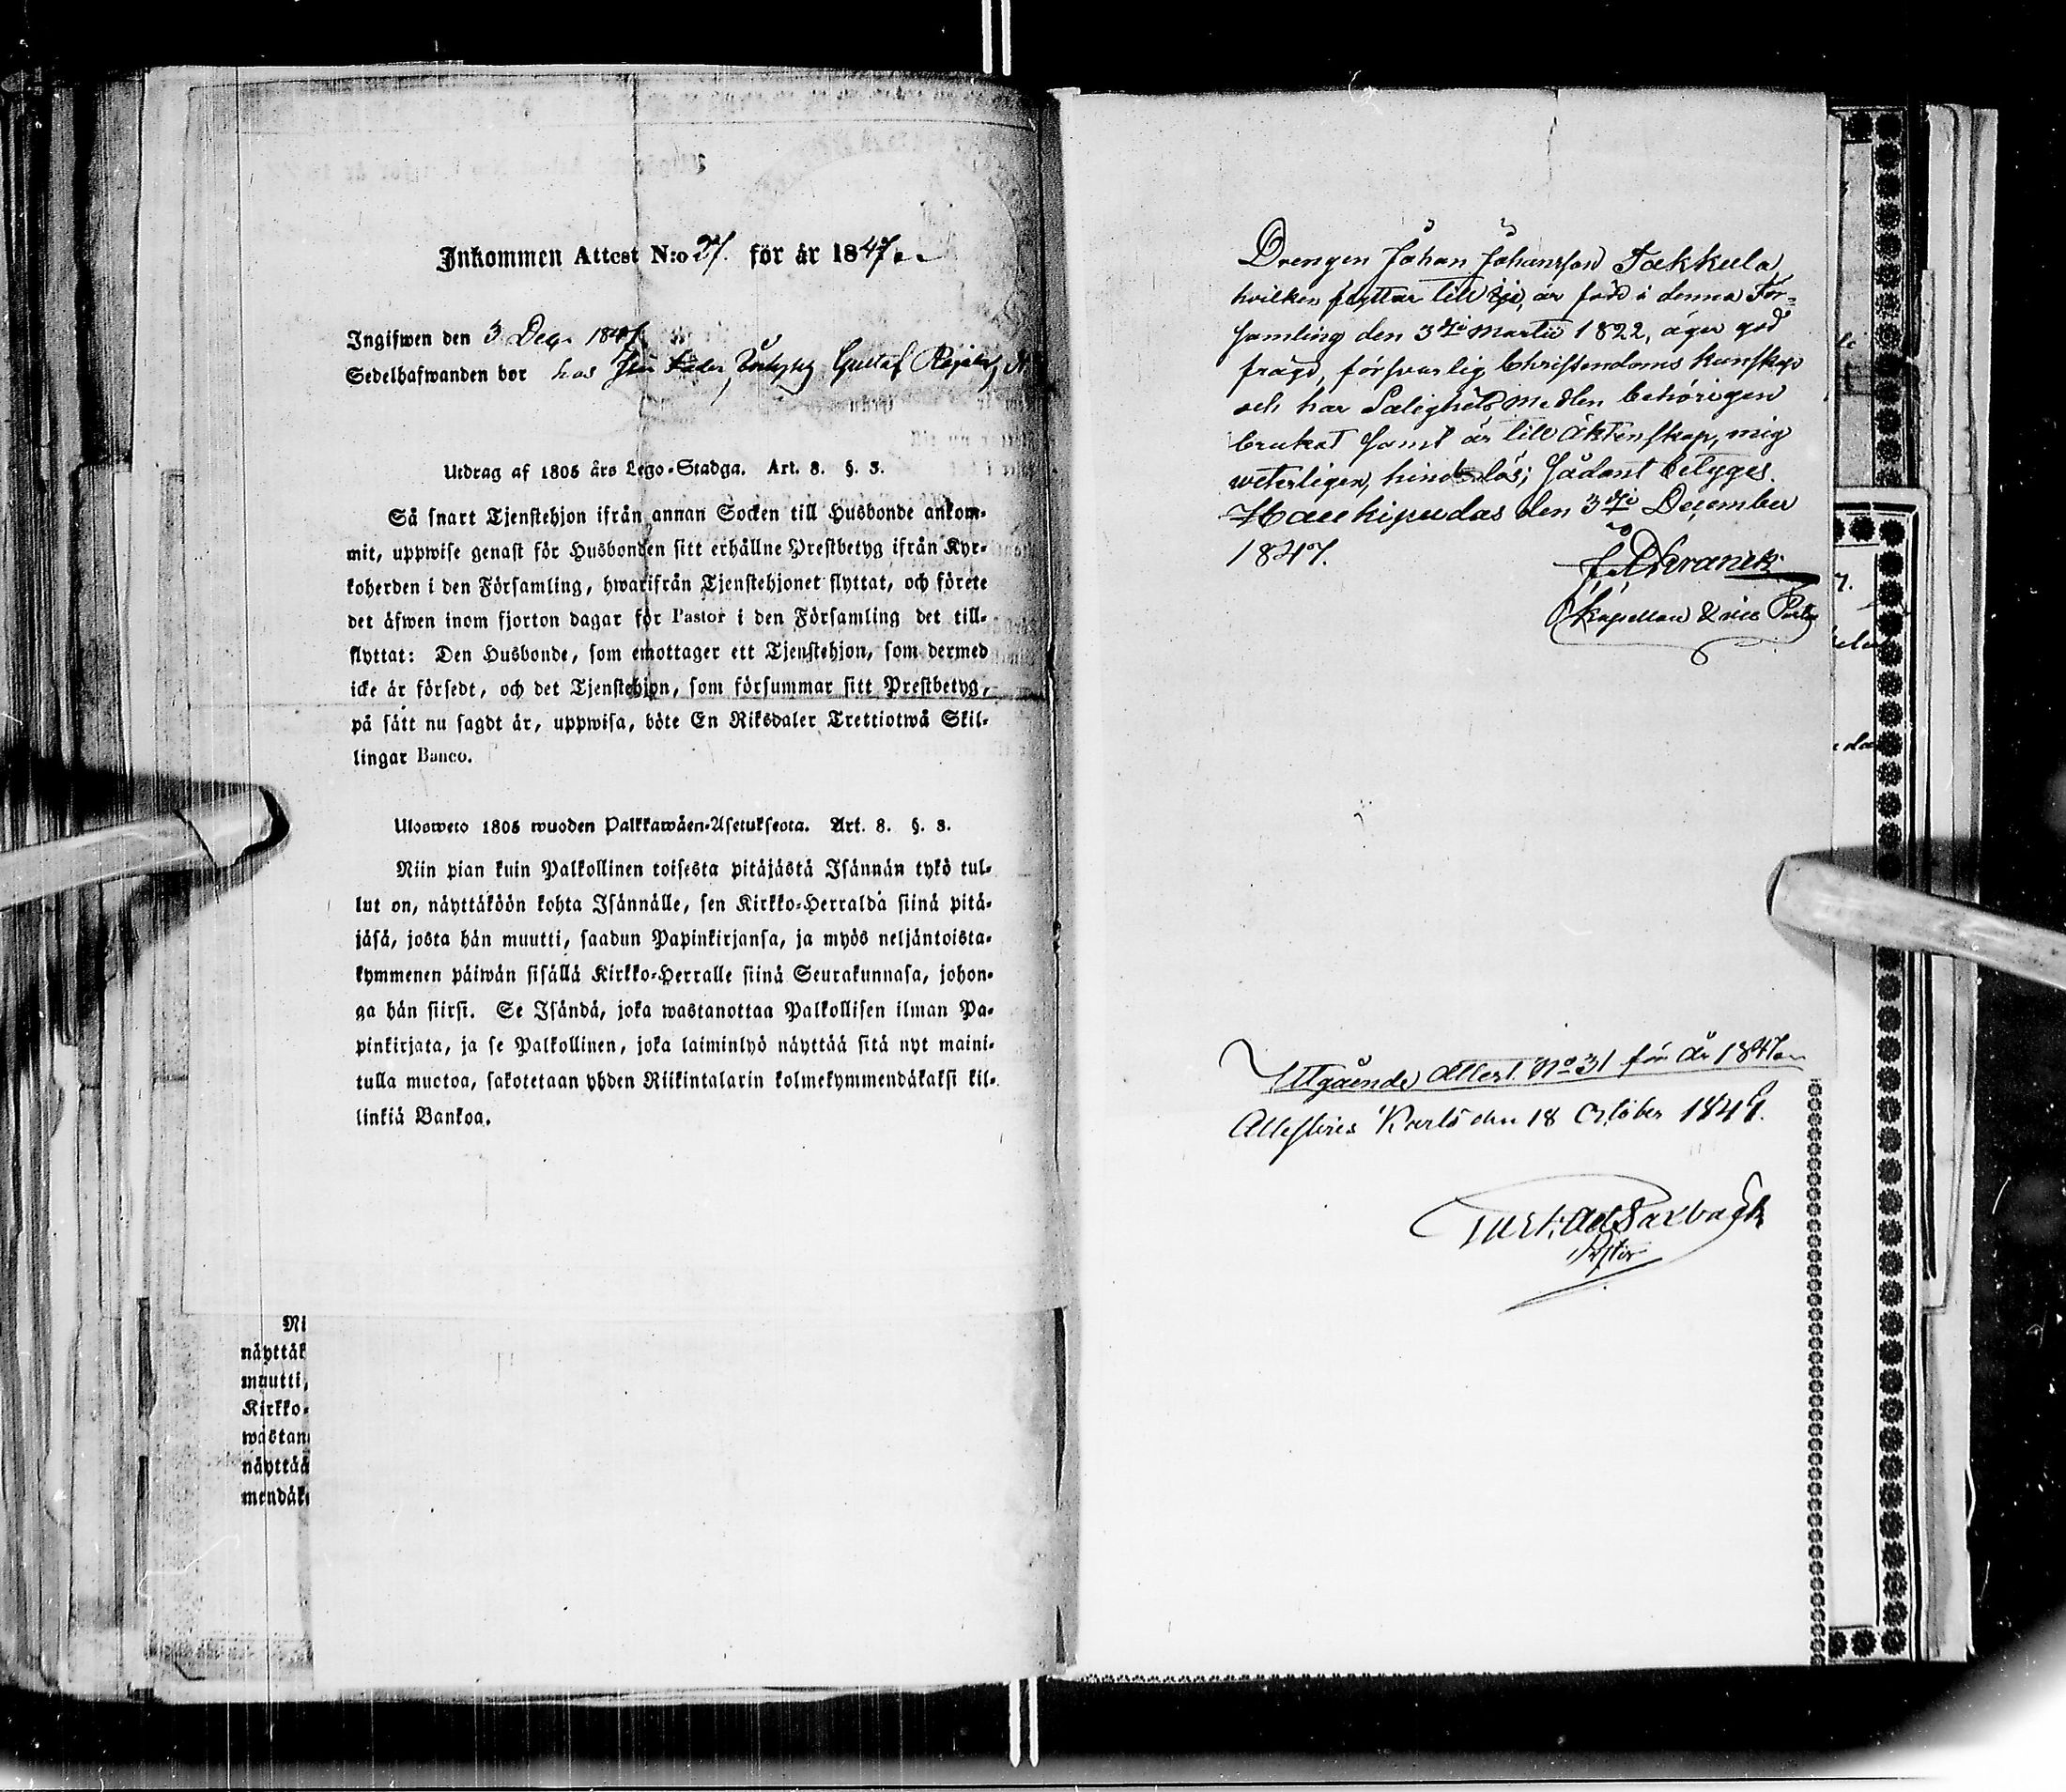 Inkommen Attest N:o 27. för år 1847.
Ingifwen den 3 Dec. 1847
Sedelhafwanden bor hos Gustaf
Utdrag af 1805 års Lego-Stadga. Art. 8. §. 3.
Så snart Tjenstehjon ifrån annan Socken till Husbonde ankom-
mit, uppwise genast för Husbonden sitt erhållne Prestbetyg ifrån Kyr-
koherden i den Församling, hwarifrån Tjenstehjonet flyttat, och förete
det äfwen inom fjorton dagar för Pastor i den Församling det till-
flyttat: Den Husbonde, som emottager ett Tjenstehjon, som dermed
icke är försedt, och det Tjenstehjon, som försummar sitt Prestbetyg,
på sätt nu sagdt är, uppwisa, böte En Riksdaler Trettiotwå Skil-
lingar Banco.
Ulosweto 1805 wuoden Palkkawäen-Asetuksesta. Art. 8. §. 3.
Niin pian kuin Palkollinen toisesta pitäjästä Isännän tykö tul-
lut on, näyttäköön kohta Isännälle, sen Kirkko-Herralda siinä pitä-
jäsä, josta hän muutti, saadun Papinkirjansa, ja myös neljäntoista-
kymmenen päiwän sisällä Kirkko-Herralle siinä Seurakunnasa, johon-
ga hän siirsi. Se Isändä, joka wastanottaa Palkollisen ilman Pa-
pinkirjata, ja se Palkollinen, joka laiminlyö näyttää sitä nyt maini-
tulla muotoa, sakotetaan yhden Riikintalarin kolmekymmendäkaksi kil-
linkiä Bankoa.
Ni
näyttäk
muutti,
Kirkko-
wastan
näyttää
mendäk
Drengen Johan Johansson Takkula,
hvilken flyttar till Ijo, är född i denna För-
samling den 3dje Martii 1822, äger god
frägd, försvarlig Christendoms kunskap
och har Salighets medlen behörigen
brukat samt är till Äktenskap, mig
veterligen, hinderslös; sådant betyges.
Haukipudas den 3dje December
1847.
Kapellan & vice Pastor
Utgående Attest No 31 för år 1847
Attesteras Karlö den 18 October 1847.
Pastor